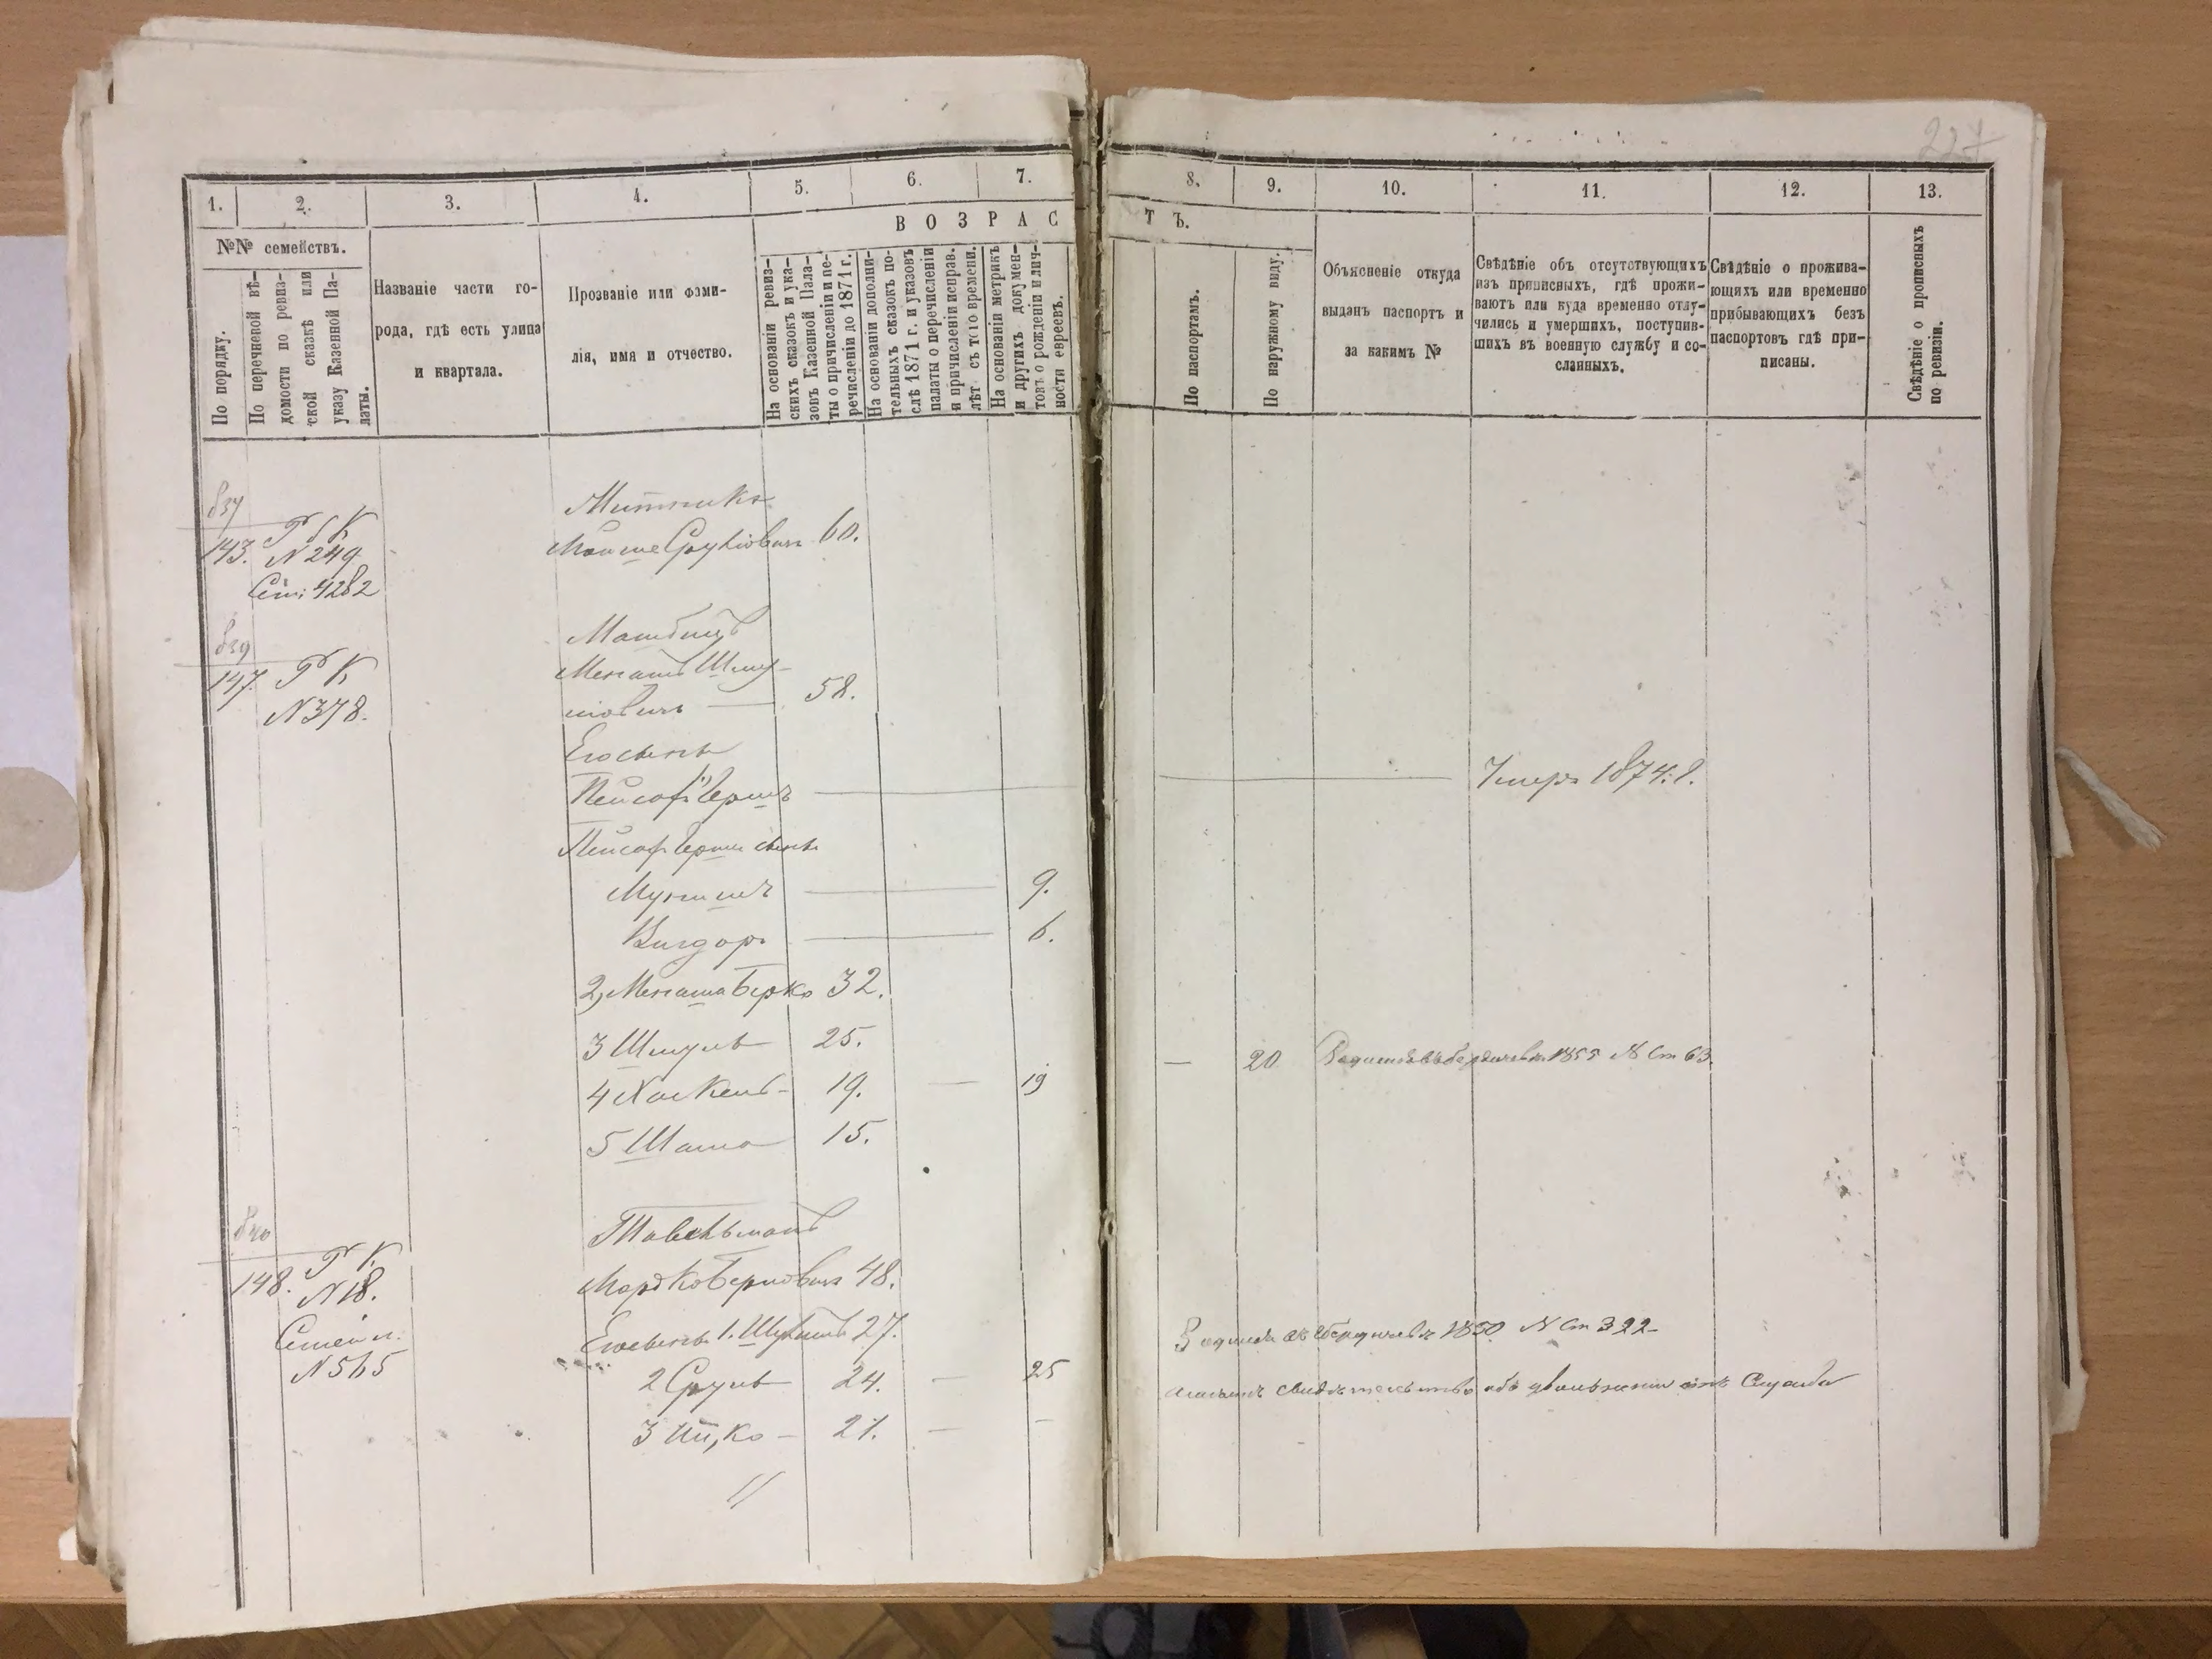 227
1. 2. 3. 4. 5. 6. 7. 8. 9. 10. 11. 12. 13.
ВОЗРАСТЪ.
№№ семействъ.
По порядку.
По перечневой вѣ-
домости по ревиз-
ской сказкѣ или
указу Казенной Па-
латы.
Названіе части го-
рода, гдѣ есть улица
и квартала.
Прозваніе или фами-
лія, имя и отчество.
На основаніи ревиз-
скихъ сказокъ и ука-
зовъ Казенной Пала-
ты о причисленіи и пе-
речисленіи до 1871 г.
На основаніи дополни-
тельныхъ сказокъ по-
слѣ 1871 г. и указовъ
палаты о перечисленіи
и причисленіи исправ.
лѣт съ того времени.
На основаніи метрикъ
и другихъ докумен-
товъ о рожденіи и лич-
ности евреевъ.
По паспортамъ.
По наружному виду.
Объясненіе откуда
выданъ паспортъ и
за какимъ №
Свѣдѣніе объ отсутствующихъ
изъ приписныхъ, гдѣ прожи-
ваютъ или куда временно отлу-
чились и умершихъ, поступив-
шихъ въ военную службу и со-
сланныхъ.
Свѣдѣніе о прожива-
ющихъ или временно
прибывающихъ безъ
паспортовъ гдѣ при-
писаны.
Свѣдѣніе о прописныхъ
по ревизіи.
837
143. Р. К. Митникъ
N 249 Мошие Срулiовичъ 60.
Сем: 4282
839
147. Р К
N 378.
Менашъ Шму-
лiовичъ — 58.
Его сынъ
Пейсахъ Гершъ — Умеръ 1874. г.
Пейсахъ Герша сынъ
— 9.
Вигдоръ — 6.
2, Менаша Берко 32.
3 Шмуль 25. — 20 1855 N Ст 63.
4 Хаскель — 19. — 19
5 15.
840
148. Р. К.
N 18. Мордко Берковичъ 48.
Семейн. Его сынъ 1. 27. 1850 N Ст 322
N 565 2 Сруль 24. — 25
3 Ицко — 21. — —